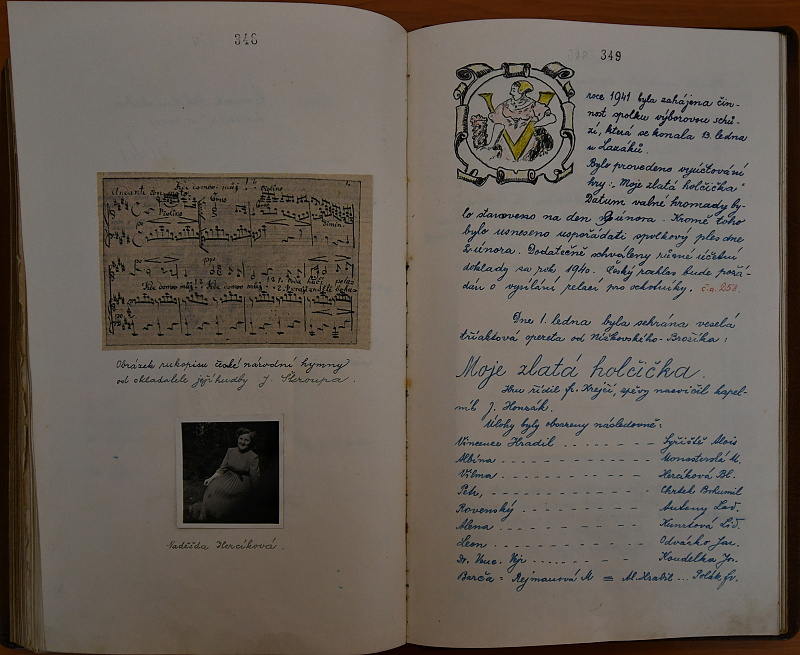 346
Andante con moto. Kde domov můj!
Violino
Kde domov můj! Kde domov můj!
Obrázek rukopisu české národní hymny
od skladatele její hudby J. Škroupa.
Naděžda Hercíková.
349
roce 1941 byla zahájena čin-
nost spolku výborovou schů-
zí, která se konala 13. ledna
u Lazáků.
Bylo provedeno vyúčtování
hry: „Moje zlatá holčička"
Datum valné hromady by-
lo stanoveno na den února. Kromě toho
bylo usneseno uspořádati spolkový ples dne
2. února. Dodatečně schváleny různé účetní
doklady za rok 1940. Český rozhlas bude pořá-
dán o vysílání relací pro ochotníky. č.a. 258.
Dne 1. ledna byla sehrána veselá
tříaktová opereta od Nížkovského-Brožíka:
Moje zlatá holčička.
Hru řídil fr. Krejčí, zpěvy nacvičil kapel-
ník J. Honzák.
Úlohy byly obsazeny následovně:
Vincenc Hradil . . . . . . - - - - Syřiště Alois
Albína . . . - - - - - - - - Monasterská M.
Vilma . . . - - - - - - - - Hercíková Bl.
Petr, . . . . - - - - - - - Chrtek Bohumil
Rovenský . . . - - - - - - Antony Lad.
Alena . . . . - - - - - - Kunrtová Lid.
Leon . . . - - - - - - - Odvárko Jar.
Dr. Vinc. . . . . . - - - - Koudelka Jos.
Barča = Rejmanová M = Al. Hradil ... Polák fr.